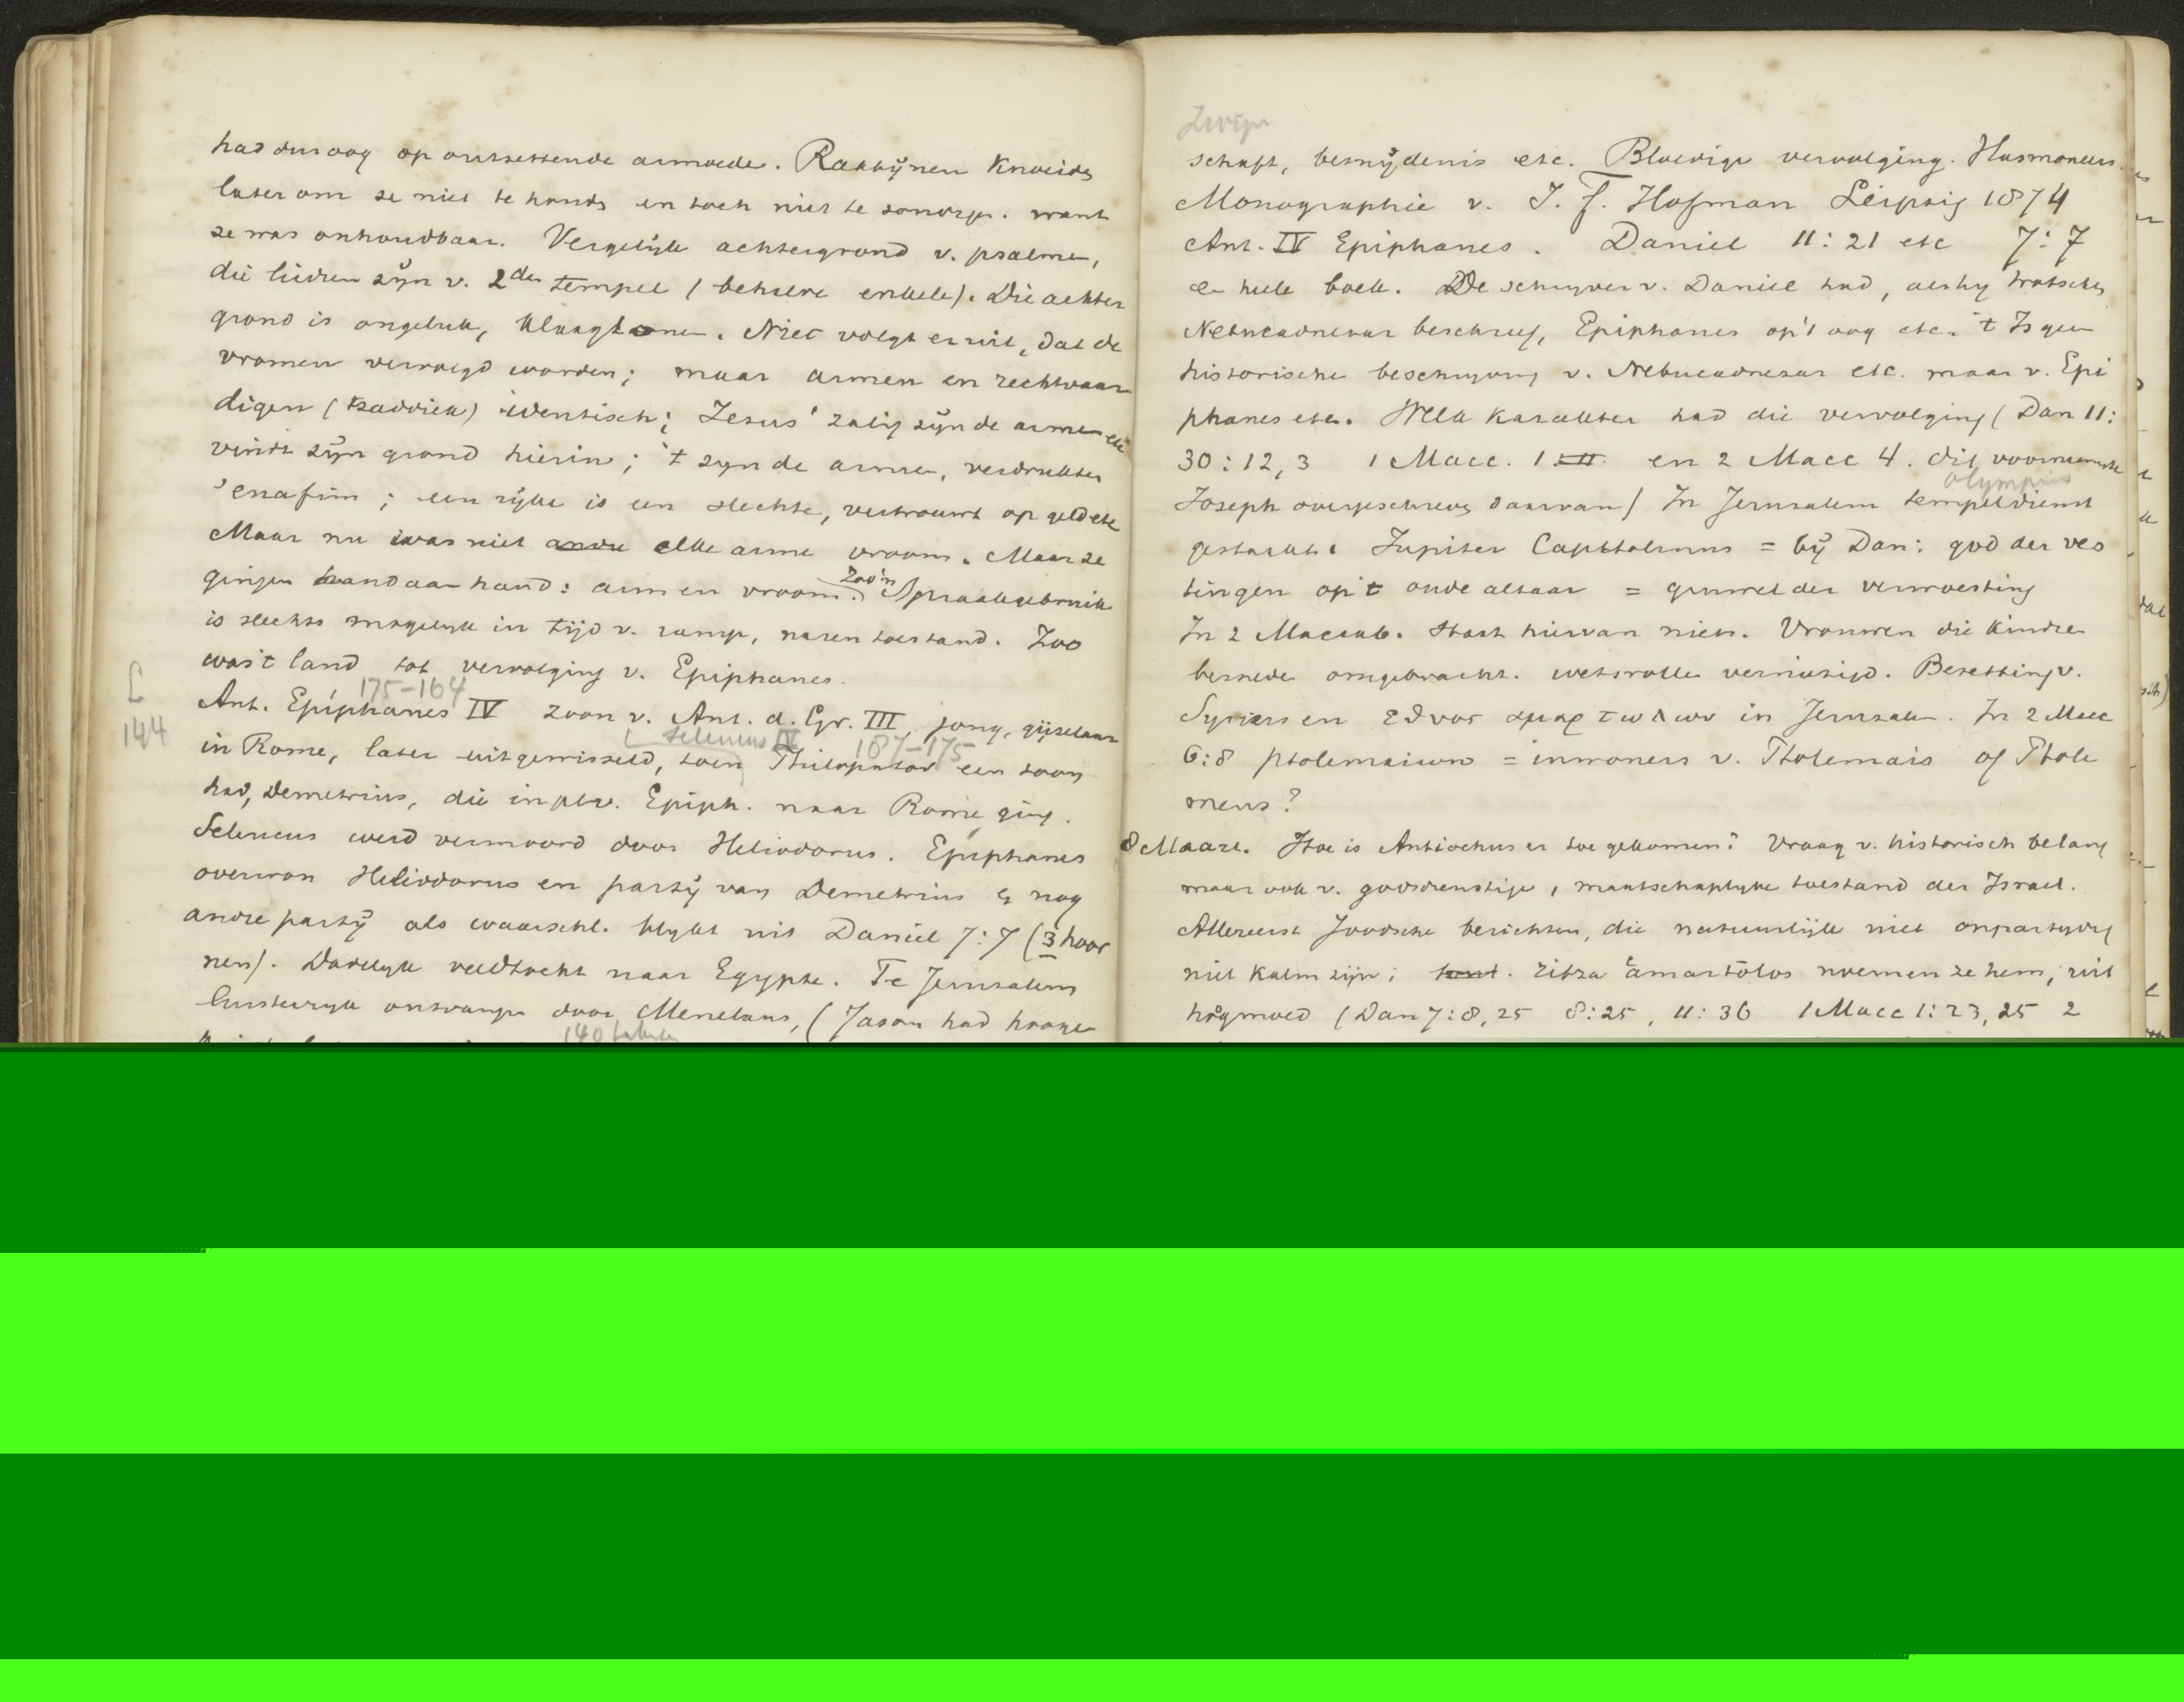 had dus oog op ontzettende armoede. Rabbijnen Knoeids
later om ze niet te houds en toch niet te zondige. want
ze was onhoudbaar. Vergelijk achtergrond v. psalmen,
die liedren zijn v. 2den tempel (behalve enkele). Die achter
grond is ongeluk, klaagtonen. Niet volgt eruit, dat de
vromen vervolgd worden; maar armen en rechtvaar
digen (tsaddiek) identisch; Jezus' zalig zijn de armen etc
vindt zijn grond hierin; 't zyn de armen, verdrukten
een rijke is een slechte, vertrouwt op geld etc
Maar nu was niet elke arme vroom. Maar ze
gingen hand aan hand: arm en vroom. Zoo'n Spraakgebruik
is slechts mogelyk in tijd v. ramp, naren toestand. Zoo
was 't land tot vervolging v. Epiphanes.
175-164
144
Ant. Epiphanes IV zoon v. Ant. d. Gr. III jong, gijzelaar
Seleucus IV 187-175
in Rome, later uitgewisseld, toen Philopator een zoon
had, Demetrius, die in pl. v. Epiph. naar Rome ging.
Seleucus werd vermoord door Heliodorus. Epiphanes
overwon Heliodorus en partij van Demetrius & nog
andre partij als waarschl. blykt uit Daniel 7:7 (3 hoor
nen). Dadelyk veldtocht naar Egypte. Te Jeruzalem
luisteryk ontvange door Menelaus, (Jason had hooge
140 talenten
schaft, besnijdenis etc. Bloedige vervolging. Hasmoneers
Monographie v. J. F. Hofman Leipzig 1874
Ant. IV Epiphanes. Daniel 11:21 etc 7:7
en hele boek. De schryver v. Daniel had, als hy trotsche
Nebucadnezar beschreef, Epiphanes op 't oog etc. 't Is geen
historische beschryving v. Nebucadnezar etc. maar v. Epi
phanes etc. Welk karakter had die vervolging (Dan 11:
30: 12, 3 1 Macc. 1 en 2 Macc 4. dit voornaamste
Olympius
Joseph overgeschreve daarvan) In Jeruzalem tempeldienst
gestaakt. Jupiter Capitolinus = bij Dan: god der ves
tingen op 't oude altaar = gruwel der verwoesting
In 2 Maccab. staat hiervan niets. Vrouwen die kindren
besnede omgebracht. wetsrolle vernietigd. Bezetting v.
Syriers en εθνος αμαρτωλων in Jeruzalem. In 2 Macc
6:8 ptolemaiwn = inwoners v. Ptolemais of Ptole
meus?
8 Maart. Hoe is Antiochus er toe gekomen? Vraag v. historisch belang
maar ook v. godsdienstige, maatschaplyke toestand der Israel.
Allereerst Joodsche berichten, die natuurlijk niet onpartydig
niet kalm zijn; ritza amartolos noemen ze hem, uit
hoogmoed (Dan 7:8, 25 8:25, 11:36 1 Macc 1:23, 25 2